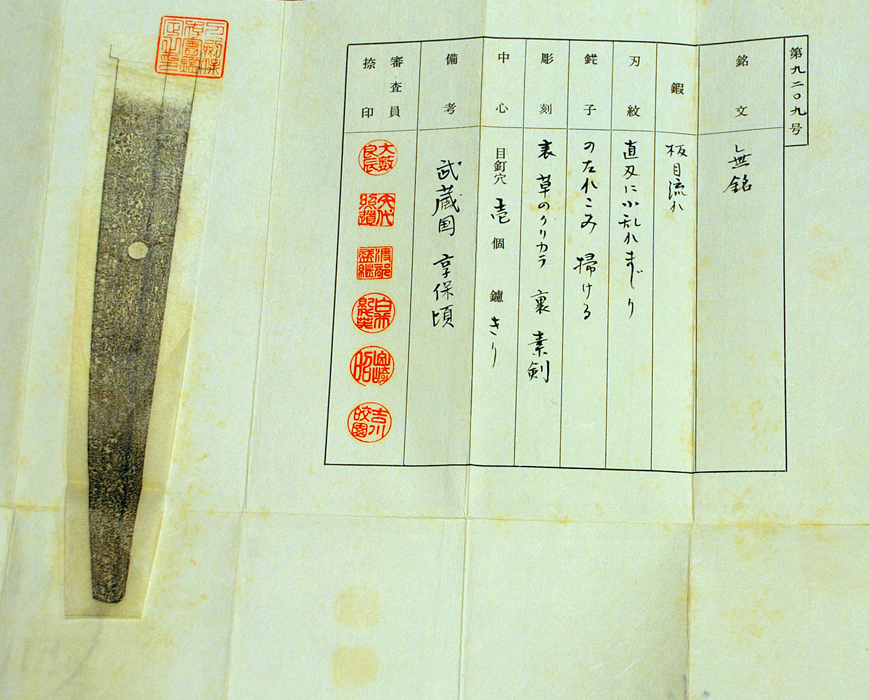 第九二〇九号
銘文
無銘
鍜
板目流れ
刃紋
直刃に小乱れまじり
鋩子
のたれこみ 掃ける
彫刻
表 草のクリカラ 裏 素剣
中心
目釘穴 壱個 鑢 きり
備考
武蔵国 享保頃
審査員
捺印